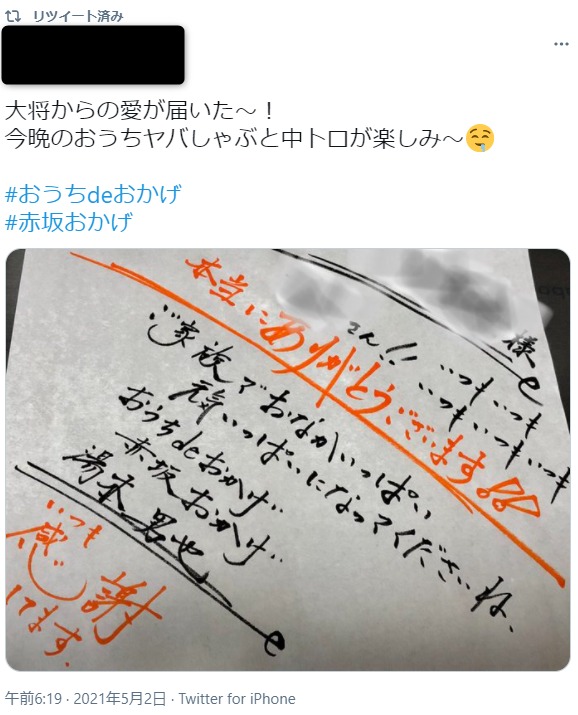 リツイート済み
大将からの愛が届いた〜！
今晩のおうちヤバしゃぶと中トロが楽しみ〜🤤
#おうちdeおかげ
#赤坂おかげ
様
さん!! いつもいつも
いつもいつもいつも
本当にありがとうございます!!
ご家族でおなかいっぱい
元気いっぱいになってくださいね、
おうちdeおかげ
赤坂おかげ
湯本 男也
いつも
感謝
してます.
午前6:19 · 2021年5月2日 · Twitter for iPhone